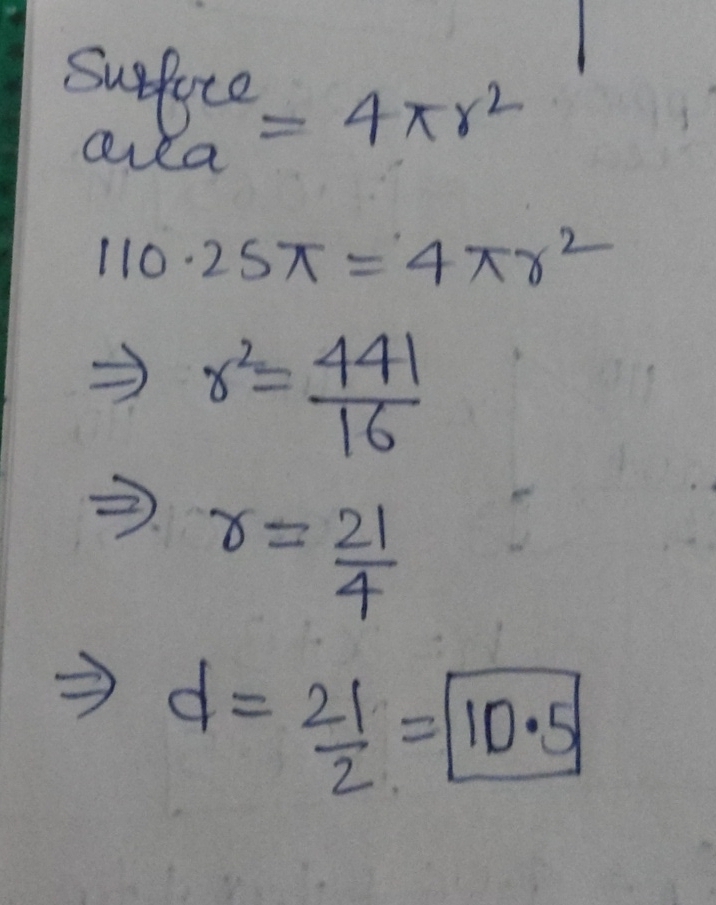 Surface area = 4πr²
110.25π = 4πr²
⇒ r² = 441/16
⇒ r = 21/4
⇒ d = 21/2 = 10.5